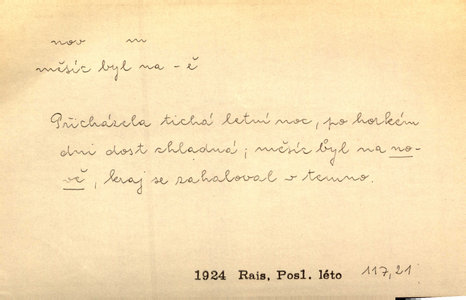 nov m
měsíc byl na -ě
Přicházela tichá letní noc, po horkém
dni dost chladná; měsíc byl na no-
vě, kraj se zahaloval v temno.
1924 Rais, Posl. léto 117,21